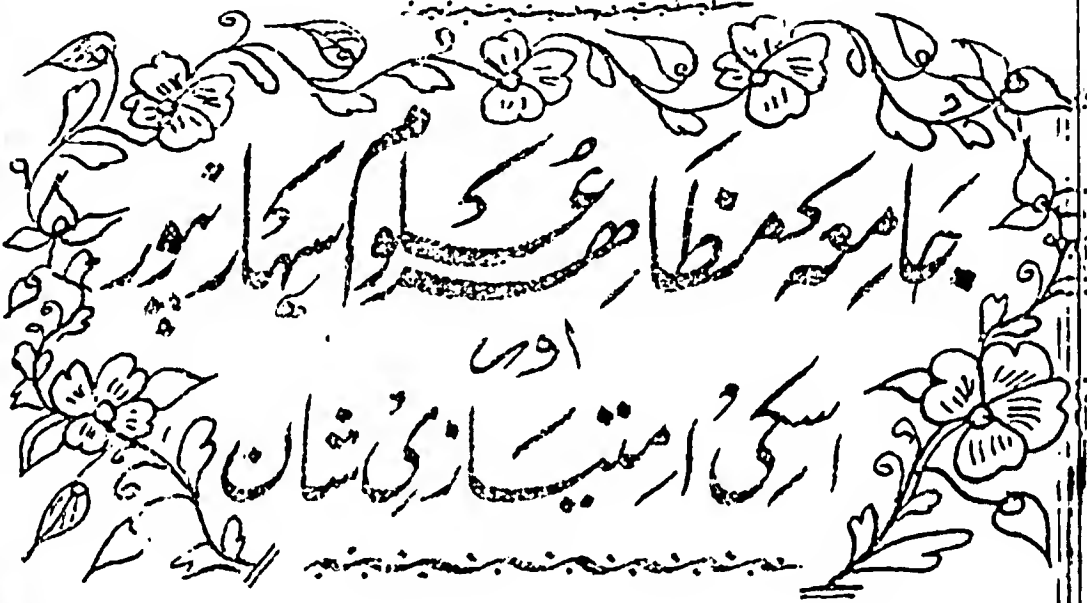 جامعہ مظاہر علوم سہارنپور
اور
اسکی امتیازی شان